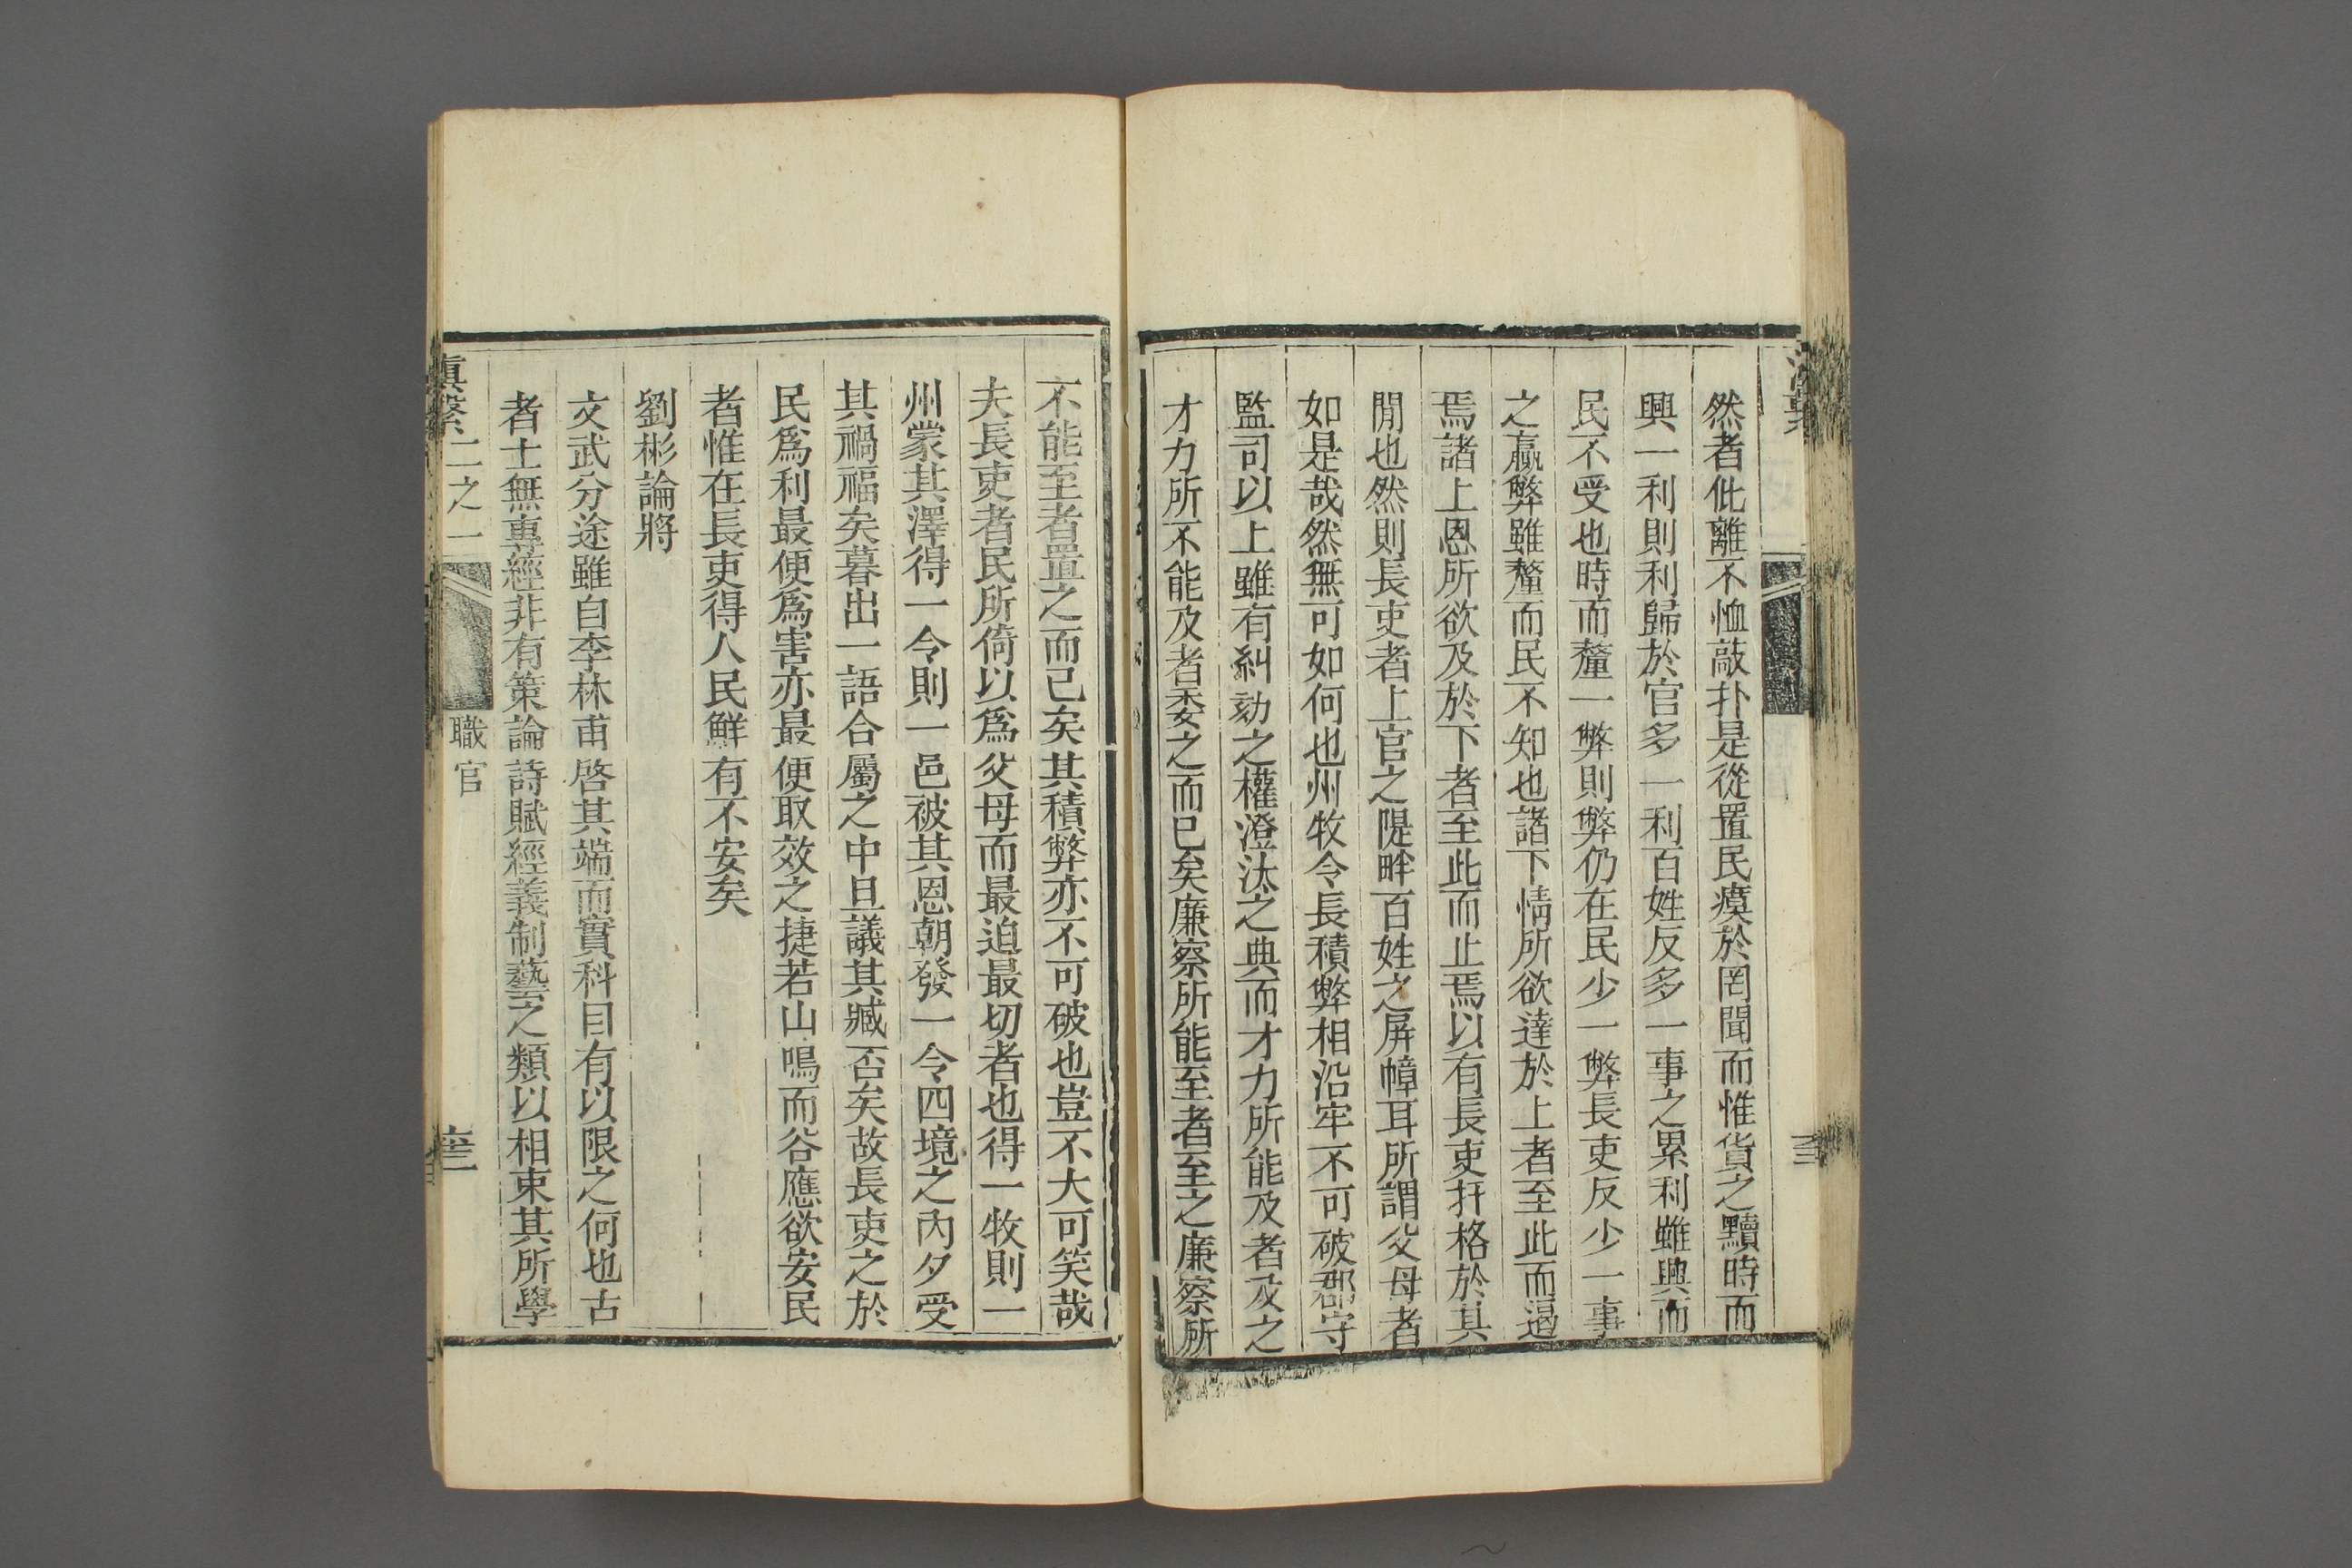 然者仳離不恤敲扑是從置民瘼於罔聞而惟貨之黷時而
興一利則利歸於官多一利百姓反多一事之累利雖興而
民不受也時而釐一弊則弊仍在民少一弊長吏反少一事
之羸弊雖釐而民不知也諸下情所欲達於上者至此而遏
焉諸上恩所欲及於下者至此而止焉以有長吏扞格於其
閒也然則長吏者上官之隄畔百姓之屏幛耳所謂父母者
如是哉然無可如何也州牧令長積弊相沿牢不可破郡守
監司以上雖有糾劾之權澄汰之典而才力所能及者及之
才力所不能及者委之而已矣廉察所能至者至之廉察所
不能至者置之而已矣其積弊亦不可破也豈不大可笑哉
夫長吏者民所倚以爲父母而最迫最切者也得一牧則一
州蒙其澤得一令則一邑被其恩朝發一令四境之內夕受
其禍福矣暮出一語合屬之中旦議其臧否矣故長吏之於
民爲利最便爲害亦最便取效之捷若山鳴而谷應欲安民
者惟在長吏得人民鮮有不安矣
劉彬論將
文武分途雖自李林甫啓其端而實科目有以限之何也古
者士無專經非有策論詩賦經義制藝之類以相束其所學
滇繫 二之一 職官